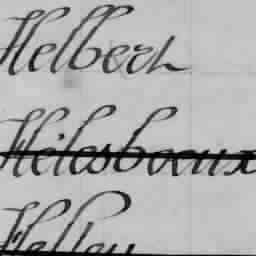 Helbert
Heilesboeux
Helley